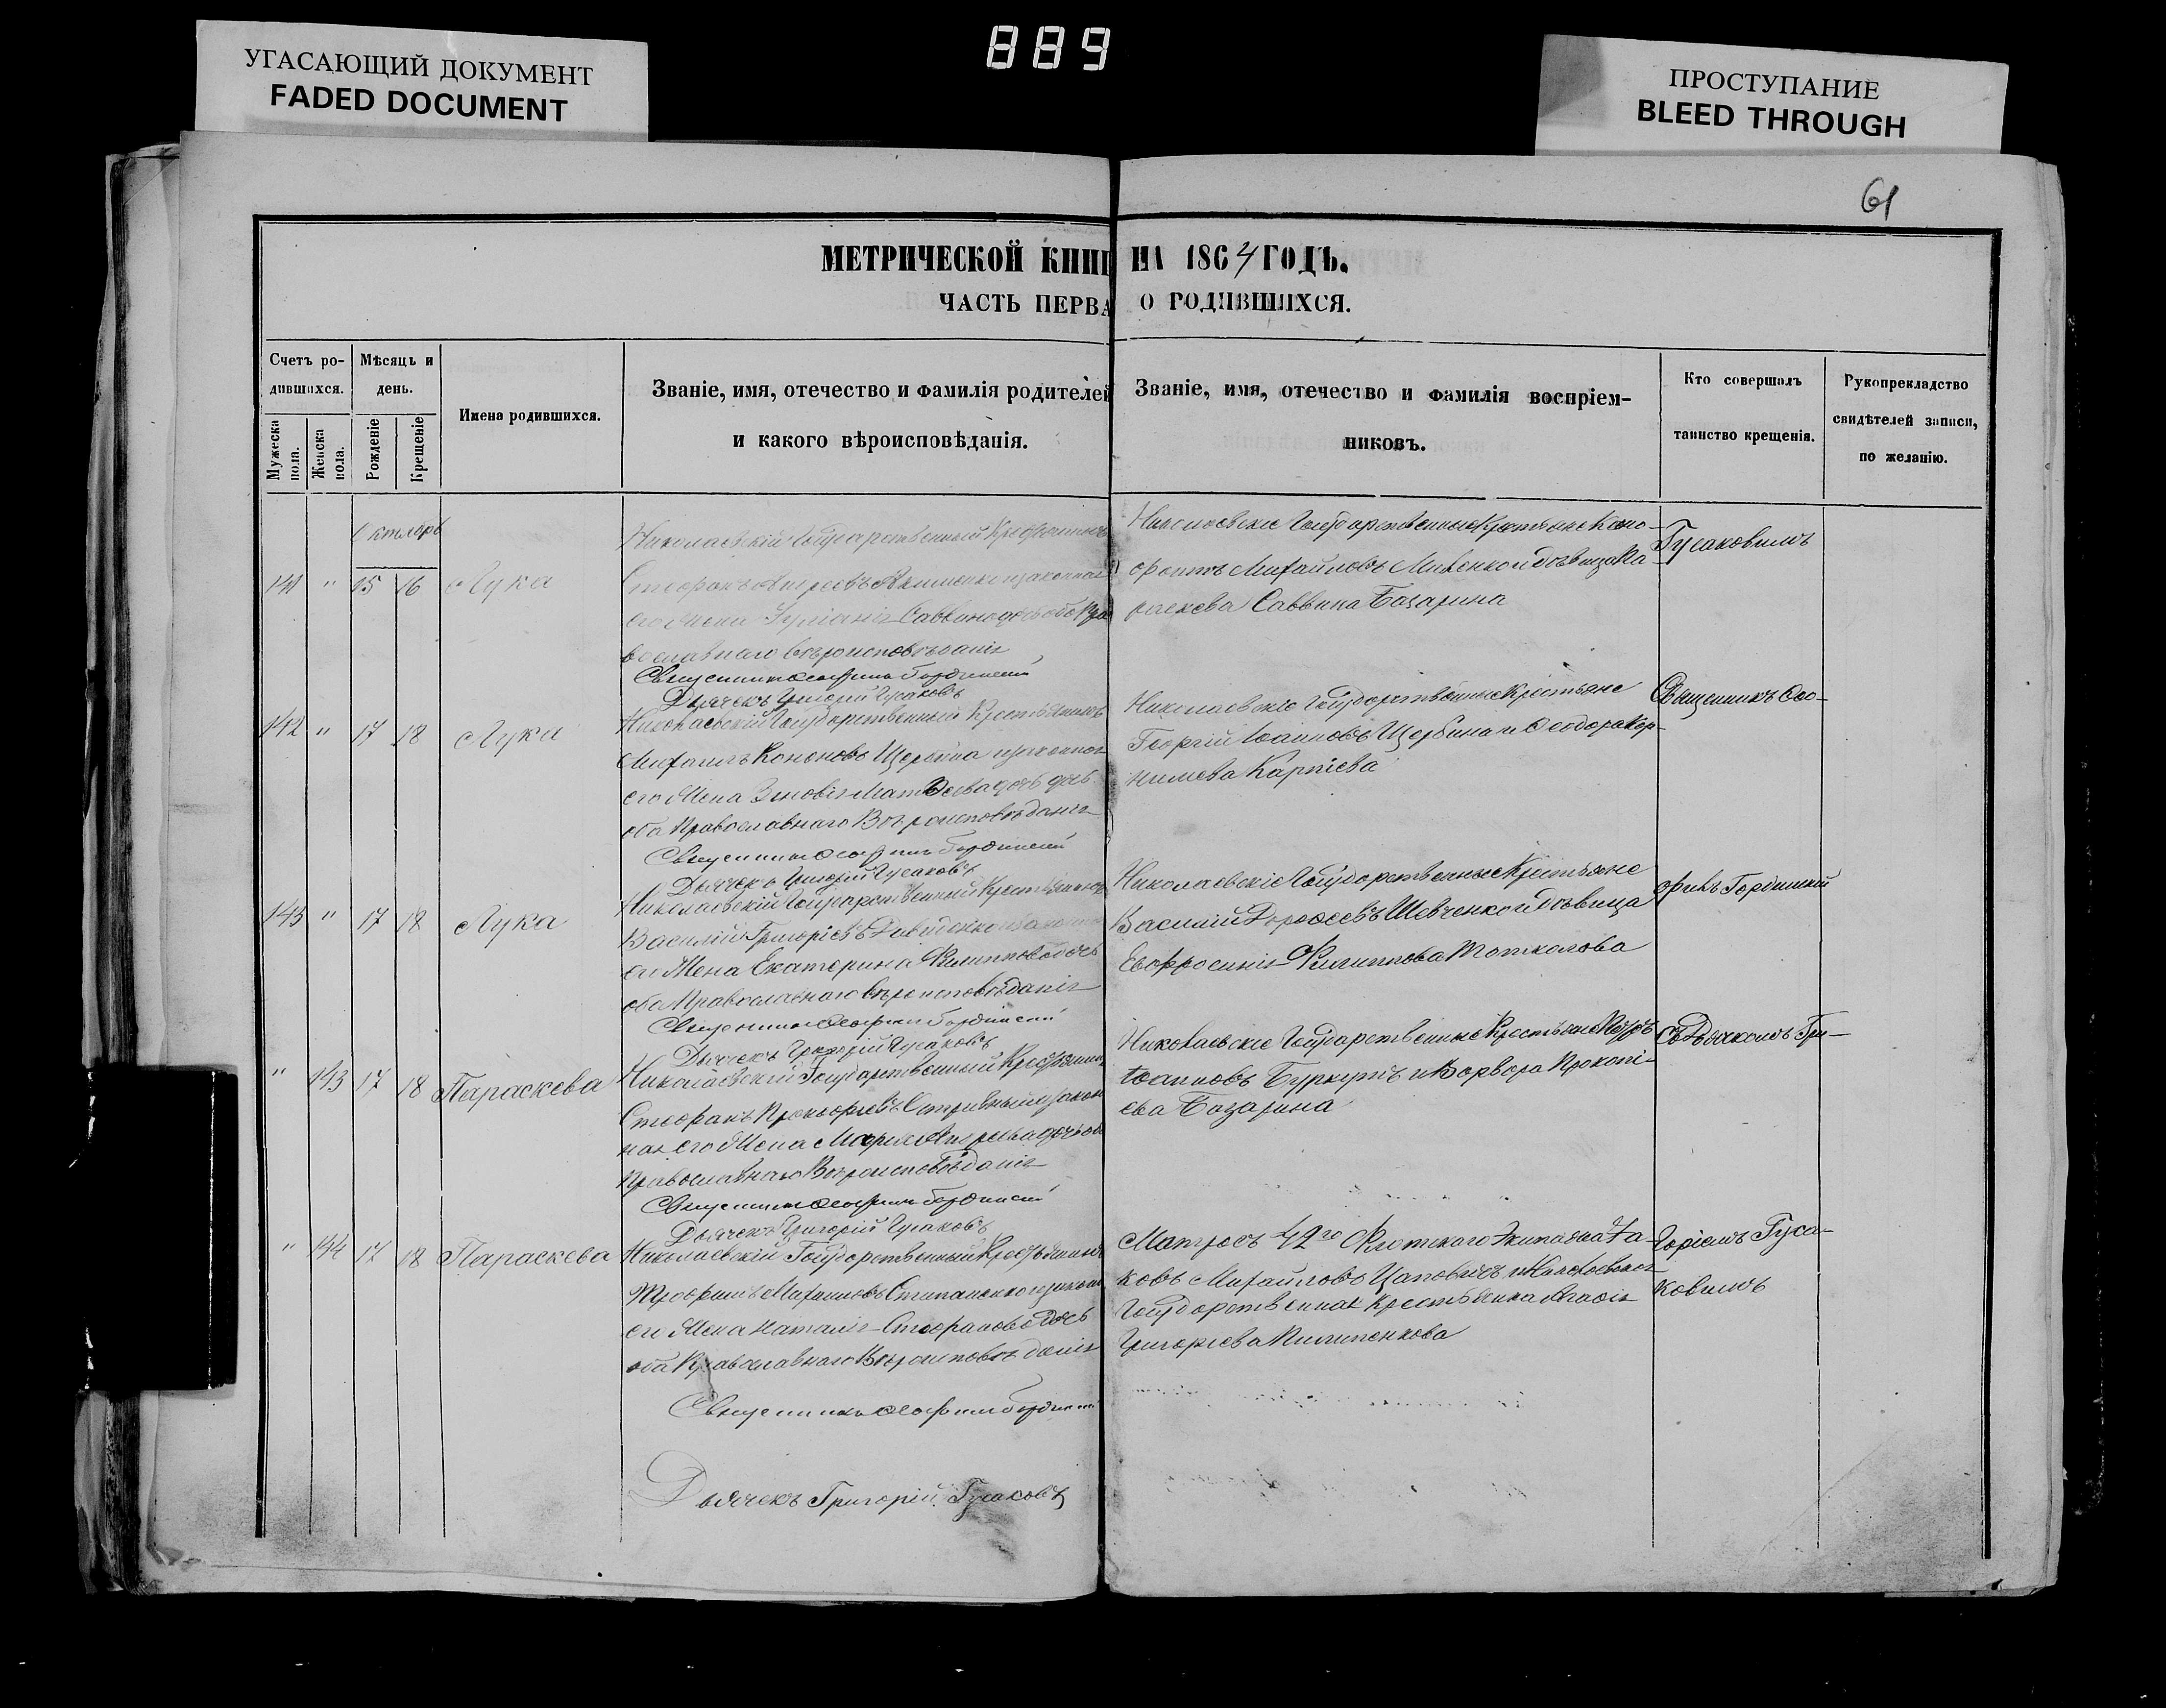 889
УГАСАЮЩИЙ ДОКУМЕНТ
FADED DOCUMENT
ПРОСТУПАНИЕ
BLEED THROUGH
61
МЕТРИЧЕСКОЙ КНИГ НА 1864 ГОДЪ.
ЧАСТЬ ПЕРВА О РОДИВШИХСЯ.
Счетъ ро-
дившихся.
Мужеска
пола.
Женска
пола.
Мѣсяцъ и
день.
Рожденіе
Крещеніе
Имена родившихся.
Званіе, имя, отечество и фамилія родителей
и какого вѣроисповѣданія.
Званіе, имя, отечество и фамилія воспріем-
никовъ.
Кто совершалъ
таинство крещенія.
Рукоприкладство
свидѣтелей записи,
по желанію.
Октябрь
141 " 15 16 Лука
Николаевскій Государственный Крестьянинъ
Стефанъ и законная
его Жена Саввина оба Пра
вославнаго вѣроисповѣданія
Священникъ Ѳеофилъ Гординскій
Дьячекъ Григорій Гусаковъ
Николаевскіе Государственные Крестьяне
Михайловъ и дѣвица Па-
раскева Саввина Базарина
Гусаковымъ
142 " 17 18 Лука
Николаевскій Государственный Крестьянинъ
Михаилъ Кононовъ Щербина и законная
его Жена Зиновія Матѳеева дочь
оба Православнаго Вѣроисповѣданія
Священникъ Ѳеофилъ Гординскій
Дьячекъ Григорій Гусаковъ
Николаевскіе Государственные Крестьяне
Георгій Іоанновъ Щербина и Ѳеодора Кор-
нилиева Карпіева
Священникъ Ѳео-
143 " 17 18 Лука
Николаевскій Государственный Крестьянинъ
Василій Григорьевъ Давиденко и законная
его Жена Екатерина Филиппова дочь
оба Православнаго вѣроисповѣданія
Священникъ Ѳеофилъ Гординскій
Дьячекъ Григорій Гусаковъ
Николаевскіе Государственные Крестьяне
Василій Дороѳеевъ Шевченко и Дѣвица
Евфросинія Филиппова
филъ Гординскій
" 143 17 18 Параскева
Николаевскій Государственный Крестьянинъ
Стефанъ Прокофьевъ и закон
ная его Жена Марія дочь оба
Православнаго Вѣроисповѣданія
Священникъ Ѳеофилъ Гординскій
Дьячекъ Григорій Гусаковъ
Николаевскіе Государственные Крестьяне Петръ
Іоанновъ Буркутъ и Варвара Прокопі-
ева Базарина
съ Дьячкомъ Гри-
" 144 17 18 Параскева
Николаевскій Государственный Крестьянинъ
Трофимъ Михайловъ Степаненко и законная
его Жена Наталія Стефанова Дочь
оба Православнаго Вѣроисповѣданія
Священникъ Ѳеофилъ Гординскій
Дьячекъ Григорій Гусаковъ
Матросъ 42го Флотскаго Экипажа Я-
ковъ Михайловъ и Николаевская
Государственная Крестьянка Агафія
Григорьева Пилипенкова
горіемъ Гуса-
ковымъ